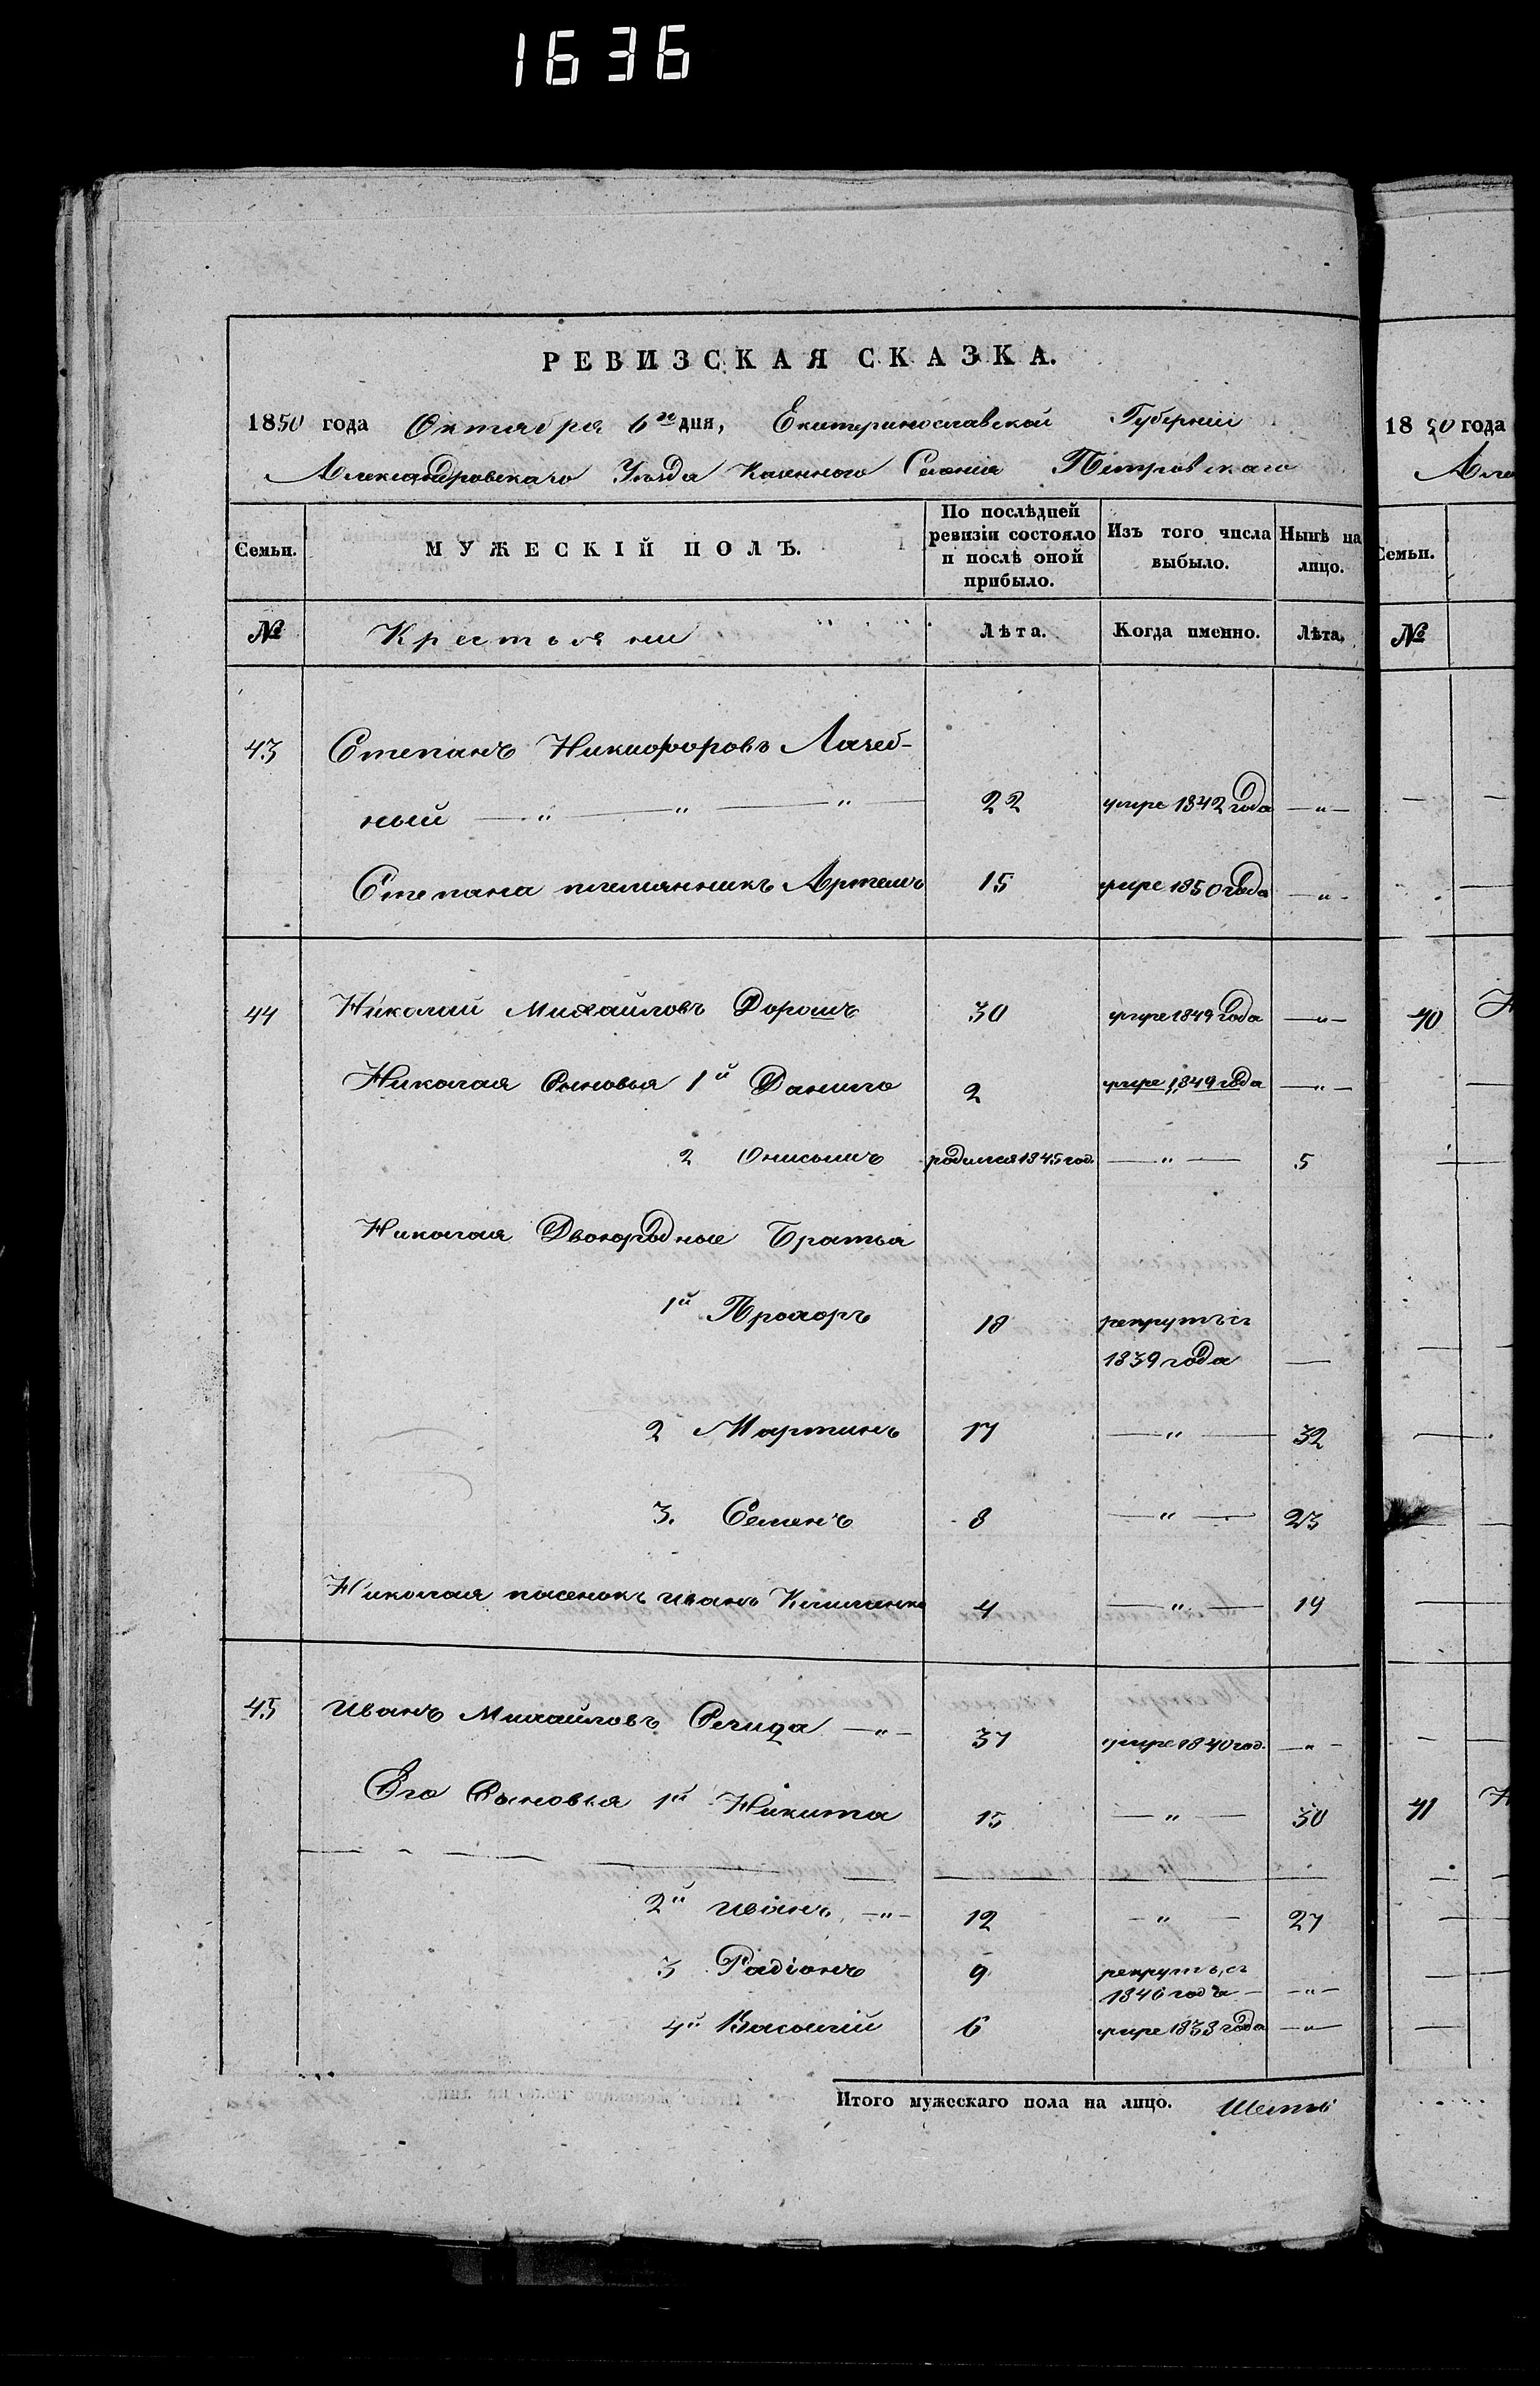 1636
РЕВИЗСКАЯ СКАЗКА.
1850 года Октября 6го дня, Екатеринославской Губерніи
Александровскаго Уѣзда Казенного Селенія Петровскаго
Семьи. МУЖЕСКІЙ ПОЛЪ. По послѣдней ревизіи состояло и послѣ оной прибыло. Изъ того числа выбыло. Нынѣ на лицо.
№ Крестьяни Лѣта. Когда именно. Лѣта.
43 Степанъ Никифоровъ Лачеб-
ный — " — " — " — 22 умре 1842 года — " —
Степана племянникъ Артемъ 15 умре 1850 года — " —
44 Николай Михайловъ Дорошъ 30 умре 1849 года — " —
Николая Сыновья 1й Данило 2 умре 1849 года — " —
2 Онисимъ родился 1845 год. — " — 5
Николая Двоюродные Братья
1й Прохоръ 18 рекрутъ съ
1839 года —
2 Мартинъ 17 — " — 32
3. Семенъ 8 — " — 23
Николая пасенокъ Иванъ Клименко 4 — " — 19
45 Иванъ Михайловъ — " — 37 умре 1840 год. — " —
Его Сыновья 1й Никита 15 — " — 30
2й Иванъ — " — 12 — " — 27
3 Радіонъ 9 рекрутъ съ
1846 года — — " —
4й Василій 6 умре 1838 года — " —
Итого мужескаго пола на лицо. Шесть
1850 года
Але
Семьи.
№
40 Н
41 Н